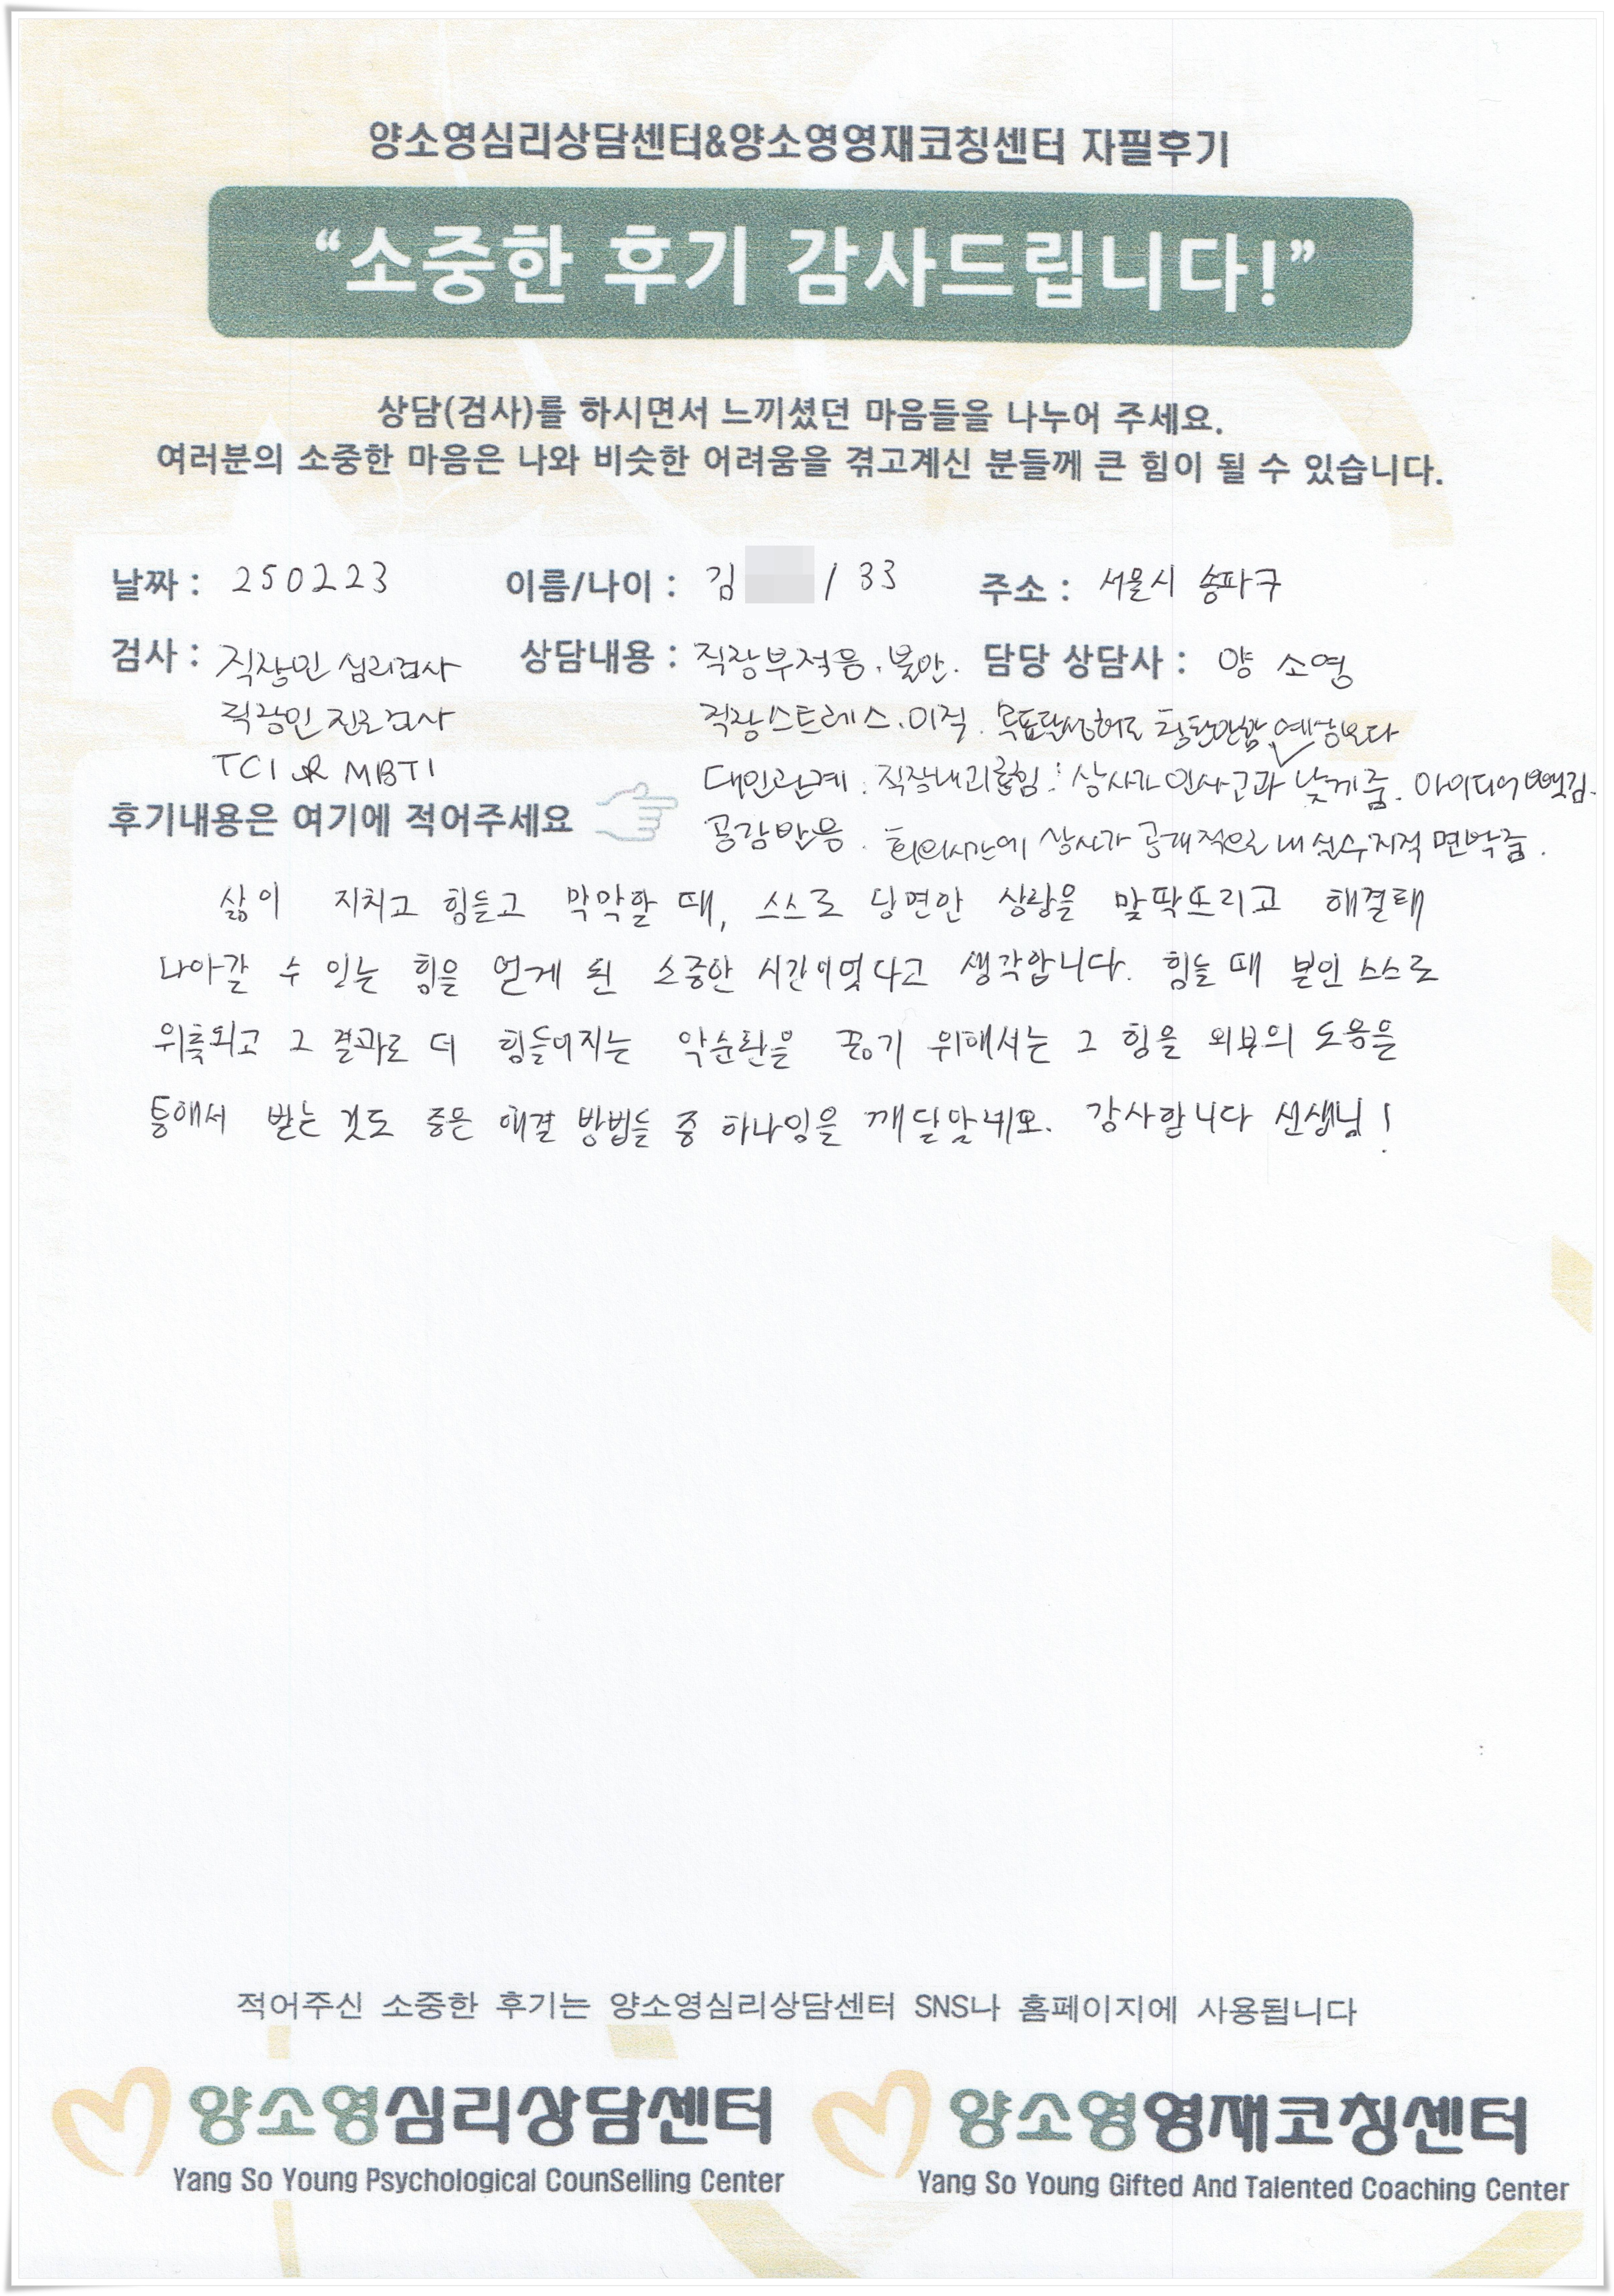 양소영심리상담센터&양소영영재코칭센터 자필후기
“소중한 후기 감사드립니다!”
상담(검사)를 하시면서 느끼셨던 마음들을 나누어 주세요.
여러분의 소중한 마음은 나와 비슷한 어려움을 겪고계신 분들께 큰 힘이 될 수 있습니다.
날짜 : 250223 이름/나이 : 김 / 33 주소 : 서울시 송파구
검사 : 직장인 심리검사 상담내용 : 직장부적응. 불안. 담당 상담사 : 양 소영
직장인 진로검사 직장스트레스. 이직. 목표달성해도 예상보다
TCI MBTI 대인관계. 직장내괴롭힘 : 상사가 인사고과 낮게줌. 아이디어 뺏김.
후기내용은 여기에 적어주세요 공감받음. 회의시간에 상사가 공개적으로 내 실수지적 면박줌.
삶이 지치고 힘들고 막막할 때, 스스로 당면한 상황을 맞딱뜨리고 해결해
나아갈 수 있는 힘을 얻게 된 소중한 시간이었다고 생각합니다. 힘들 때 본인 스스로
위축되고 그 결과로 더 힘들어지는 악순환을 끊기 위해서는 그 힘을 외부의 도움을
통해서 받는 것도 좋은 해결 방법들 중 하나임을 깨달았네요. 감사합니다 선생님!
적어주신 소중한 후기는 양소영심리상담센터 SNS나 홈페이지에 사용됩니다
양소영심리상담센터 양소영영재코칭센터
Yang So Young Psychological CounSelling Center Yang So Young Gifted And Talented Coaching Center